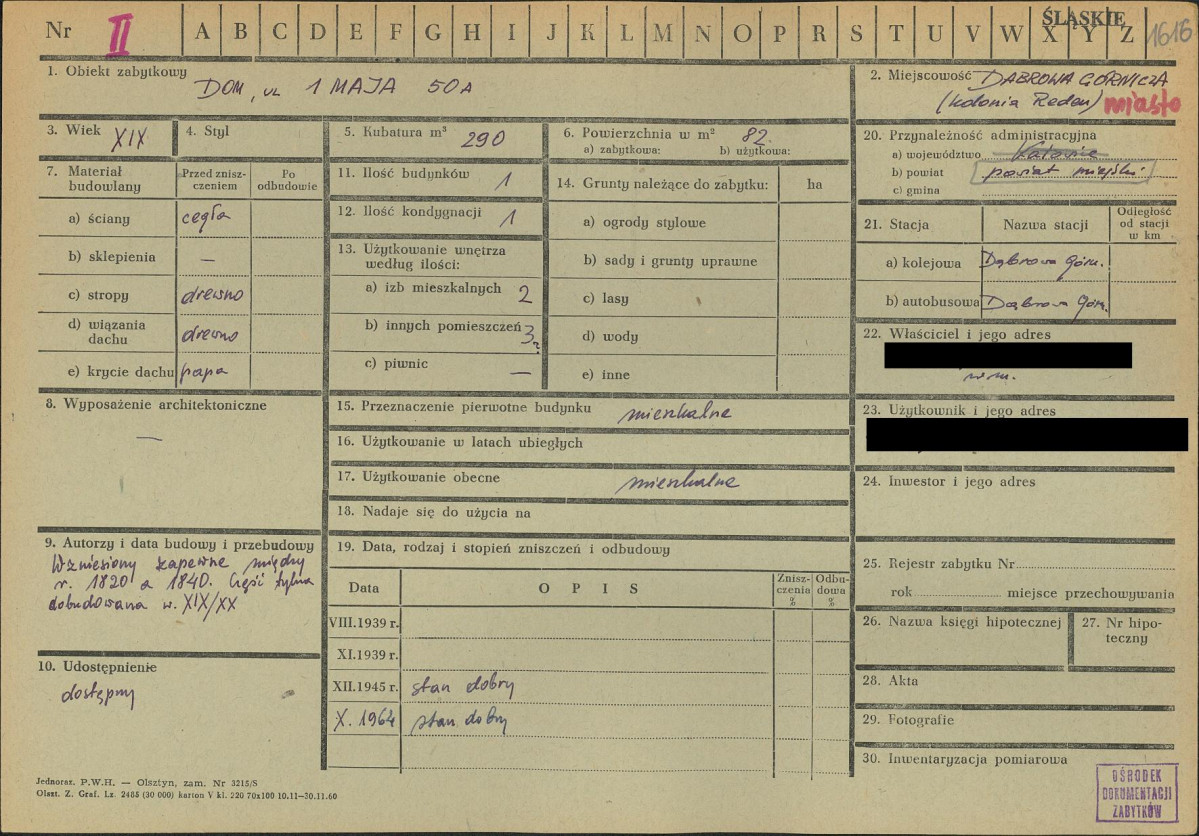 Nr II A B C D E F G H I J K L M N O P R S T U V W X Y Z ŚLĄSKIE 1616
1. Obiekt zabytkowy DOM, ul 1 MAJA 50A
2. Miejscowość DĄBROWA GÓRNICZA
(kolonia Reden) miasto
3. Wiek XIX
4. Styl
5. Kubatura m³ 290
6. Powierzchnia w m² 82.
a) zabytkowa: b) użytkowa:
7. Materiał budowlany
Przed zniszczeniem
Po odbudowie
a) ściany cegła
b) sklepienia —
c) stropy drewno
d) wiązania dachu drewno
e) krycie dachu papa
8. Wyposażenie architektoniczne
—
9. Autorzy i data budowy i przebudowy
Wzniesiony zapewne między
r. 1820 a 1840. Część tylna
dobudowana w. XIX/XX
10. Udostępnienie
dostępny
11. Ilość budynków 1
12. Ilość kondygnacji 1
13. Użytkowanie wnętrza
według ilości:
a) izb mieszkalnych 2
b) innych pomieszczeń 3
c) piwnic —
14. Grunty należące do zabytku: ha
a) ogrody stylowe
b) sady i grunty uprawne
c) lasy
d) wody
e) inne
15. Przeznaczenie pierwotne budynku mieszkalne
16. Użytkowanie w latach ubiegłych
17. Użytkowanie obecne mieszkalne
18. Nadaje się do użycia na
19. Data, rodzaj i stopień zniszczeń i odbudowy
Data OPIS Zniszczenia % Odbudowa %
VIII.1939 r.
XI.1939 r.
XII.1945 r. stan dobry
X. 1964 stan dobry
20. Przynależność administracyjna
a) województwo Katowice
b) powiat powiat miejski
c) gmina
21. Stacja Nazwa stacji Odległość od stacji w km
a) kolejowa Dąbrowa Górn.
b) autobusowa Dąbrowa Górn.
22. Właściciel i jego adres
23. Użytkownik i jego adres
24. Inwestor i jego adres
25. Rejestr zabytku Nr
rok miejsce przechowywania
26. Nazwa księgi hipotecznej
27. Nr hipoteczny
28. Akta
29. Fotografie
30. Inwentaryzacja pomiarowa
Jednoraz. P.W.H. — Olsztyn, zam. Nr 3215/S
Olszt. Z. Graf. Lz. 2485 (30 000) karton V kl. 220 70x100 10.11—30.11.60
OŚRODEK
DOKUMENTACJI
ZABYTKÓW